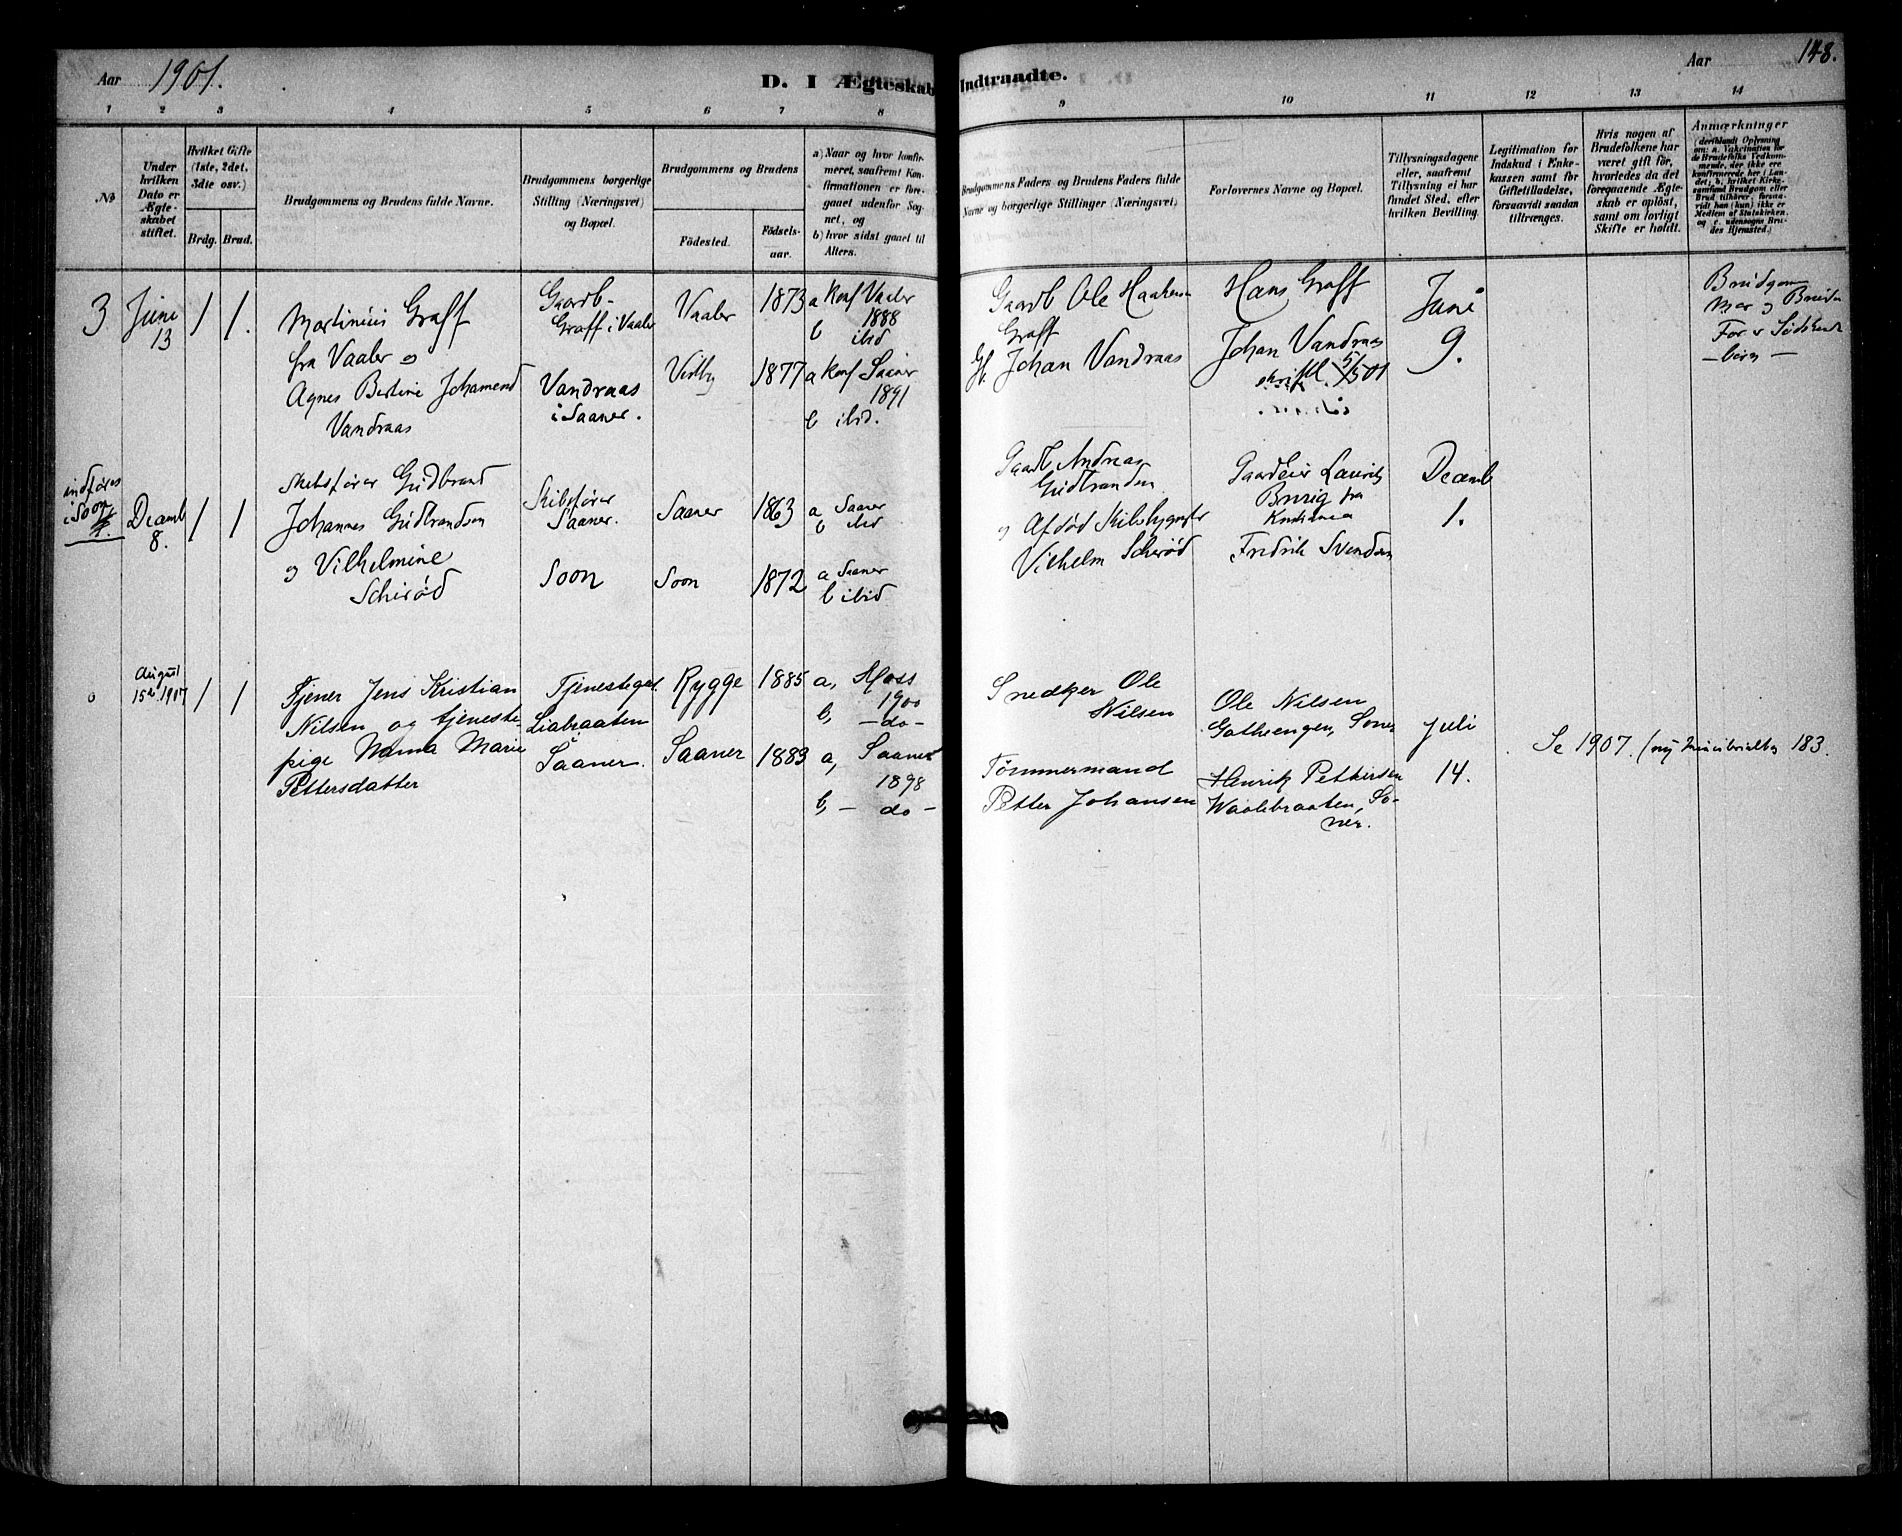 Aar 1901.
D. I Ægteskab Indtraadte.
Aar 148.
1 2 3 4 5 6 7 8 9 10 11 12 13 14
№
Under hvilken Dato er Ægteskabet stiftet.
Hvilket Gifte (1ste, 2det, 3die osv.)
Brdg. Brud.
Brudgommens og Brudens fulde Navne.
Brudgommens borgerlige Stilling (Næringsvei) og Bopæl.
Brudgommens og Brudens
Fødested.
Fødselsaar.
a) Naar og hvor konfirmeret, saafremt Konfirmationen er foregaaet udenfor Sognet, og
b) hvor sidst gaaet til Alters.
Brudgommens Faders og Brudens Faders fulde Navne og borgerlige Stillinger (Næringsvei)
Forlovernes Navne og Bopæl.
Tillysningsdagene eller, saafremt Tillysning ei har fundet Sted, efter hvilken Bevilling.
Legitimation for Indskud i Enkekassen samt for Giftetilladelse, forsaavidt saadan tiltrænges.
Hvis nogen af Brudefolkene har været gift før, hvorledes da det foregaaende Ægteskab er opløst, samt om lovligt Skifte er holdt.
Anmærkninger
3 Juni 13 1 1.
Martinius Graff
fra Vaaler og
Agnes Bertine Johansend
Vandraas
Gaardb-
Graff i Vaaler
Vandraas
i Saaner.
Vaaler 1873 a Konf Vaaler
1888
b ibid
Vestby 1877 a Konf Saaner
1891
b ibid.
Gaardb Ole Haakens
Graff
Johan Vandraas
Hans Graff
Johan Vandraas
Juni
9.
Brudgom
Mor og Bruden
Far er Sødskende
-børn-
indføres
i Soon
4.
Decemb
8. 1 1
Skibsfører Gudbrand
Johannes Gudbrandsen
og Vilhelmine
Schirød
Skibsfører
Saaner.
Soon
Saaner 1863 a Saaner
b ibid
Soon 1872 a Saaner
b ibid
Gaardb Andreas
Gudbrandsen
og Afdød Skibsbygmstr
Vilhelm Schirød
Gaardeier Lauritz
fra
Kristiania
Fredrik Svendsen
Decemb
1.
0 August
15de 1907 1 1
Tjener Jens Kristian
Nilsen og tjeneste-
pige Nanna Marie
Pettersdatter
Tjenestegut.
Liabraaten
Saaner.
Rygge 1885 a, Moss
1900
b, -do-
Saaner 1883 a, Saaner
1898
b, -do-
Snedker Ole
Nilsen
Tømmermand
Petter Johansen
Ole Nilsen
Henrik Pettersen
Waalebraaten, So-
ner.
Juli
14.
Se 1907. (ny Ministerialbog 183.